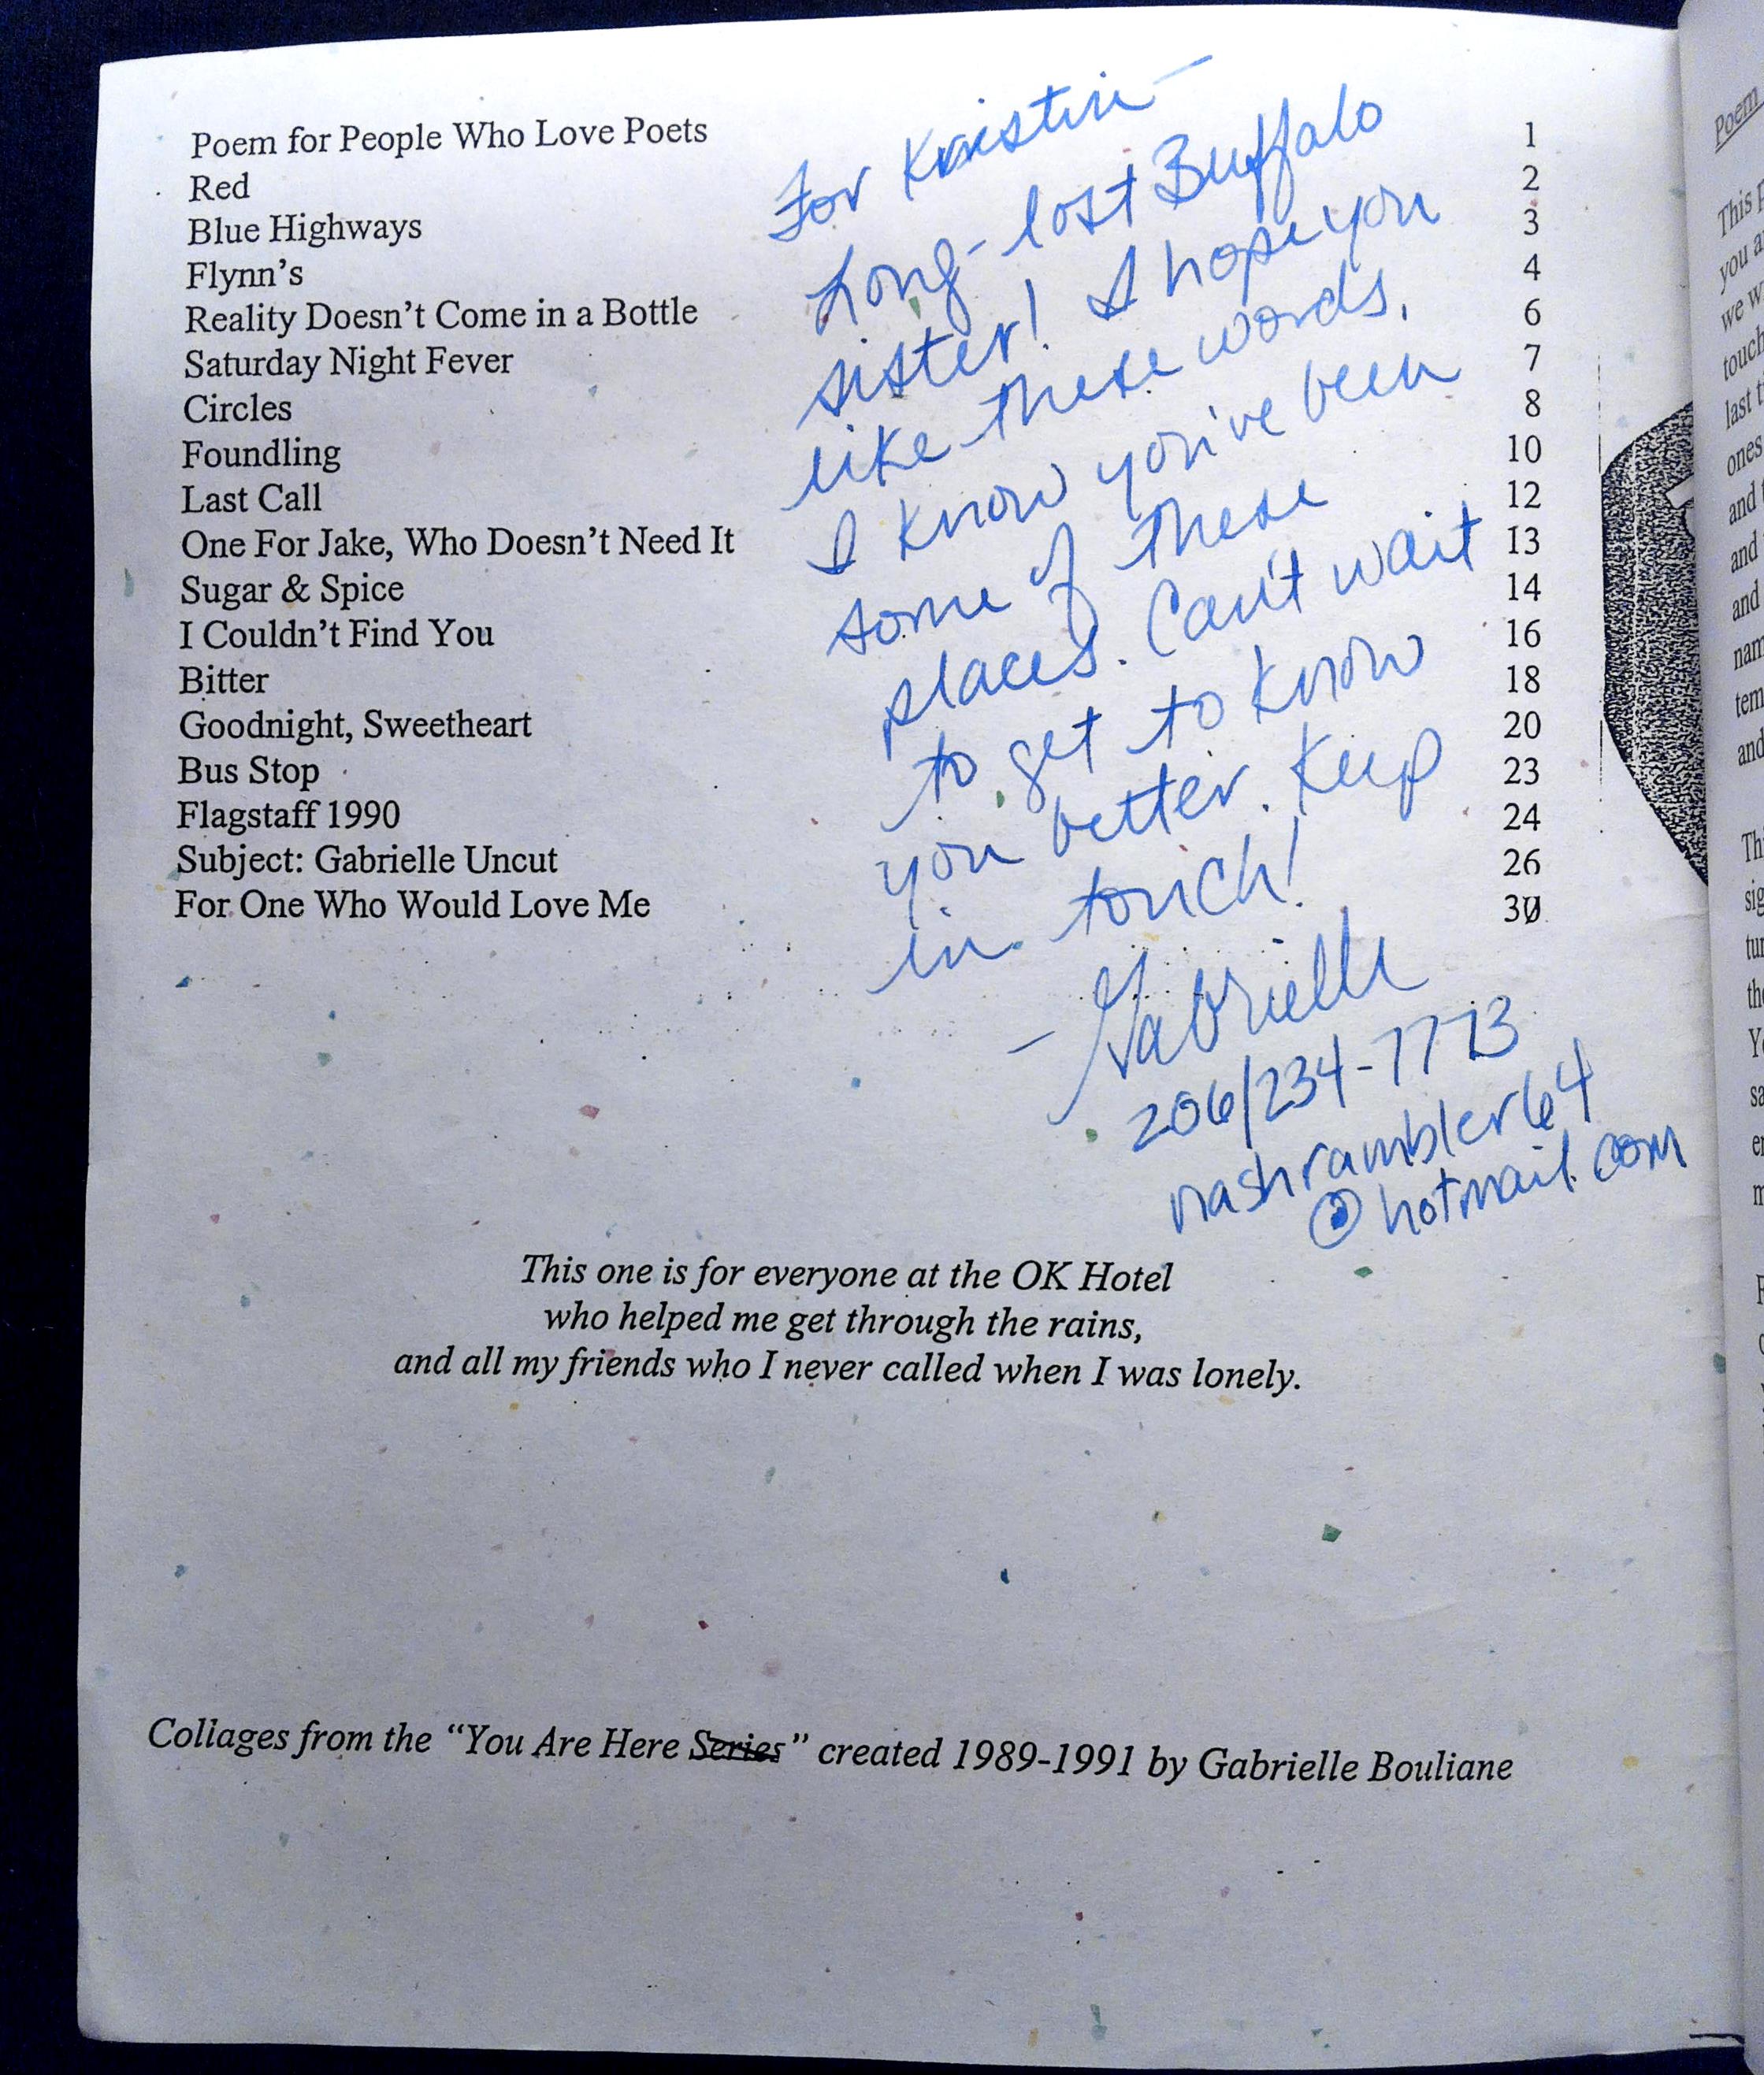 Poem for People Who Love Poets 1
Red 2
Blue Highways 3
Flynn's 4
Reality Doesn't Come in a Bottle 6
Saturday Night Fever 7
Circles 8
Foundling 10
Last Call 12
One For Jake, Who Doesn't Need It 13
Sugar & Spice 14
I Couldn't Find You 16
Bitter 18
Goodnight, Sweetheart 20
Bus Stop 23
Flagstaff 1990 24
Subject: Gabrielle Uncut 26
For One Who Would Love Me 30
For Kristin –
Long-lost Buffalo
sister! I hope you
like these words.
I know you've been
some of these
places. Can't wait
to get to know
you better. Keep
in touch!
– Gabrielle
206/234-7773
nashrambler64
@hotmail.com
This one is for everyone at the OK Hotel
who helped me get through the rains,
and all my friends who I never called when I was lonely.
Collages from the "You Are Here Series" created 1989-1991 by Gabrielle Bouliane
Poem
This
you
we
touch
last
ones
and
and
and
and